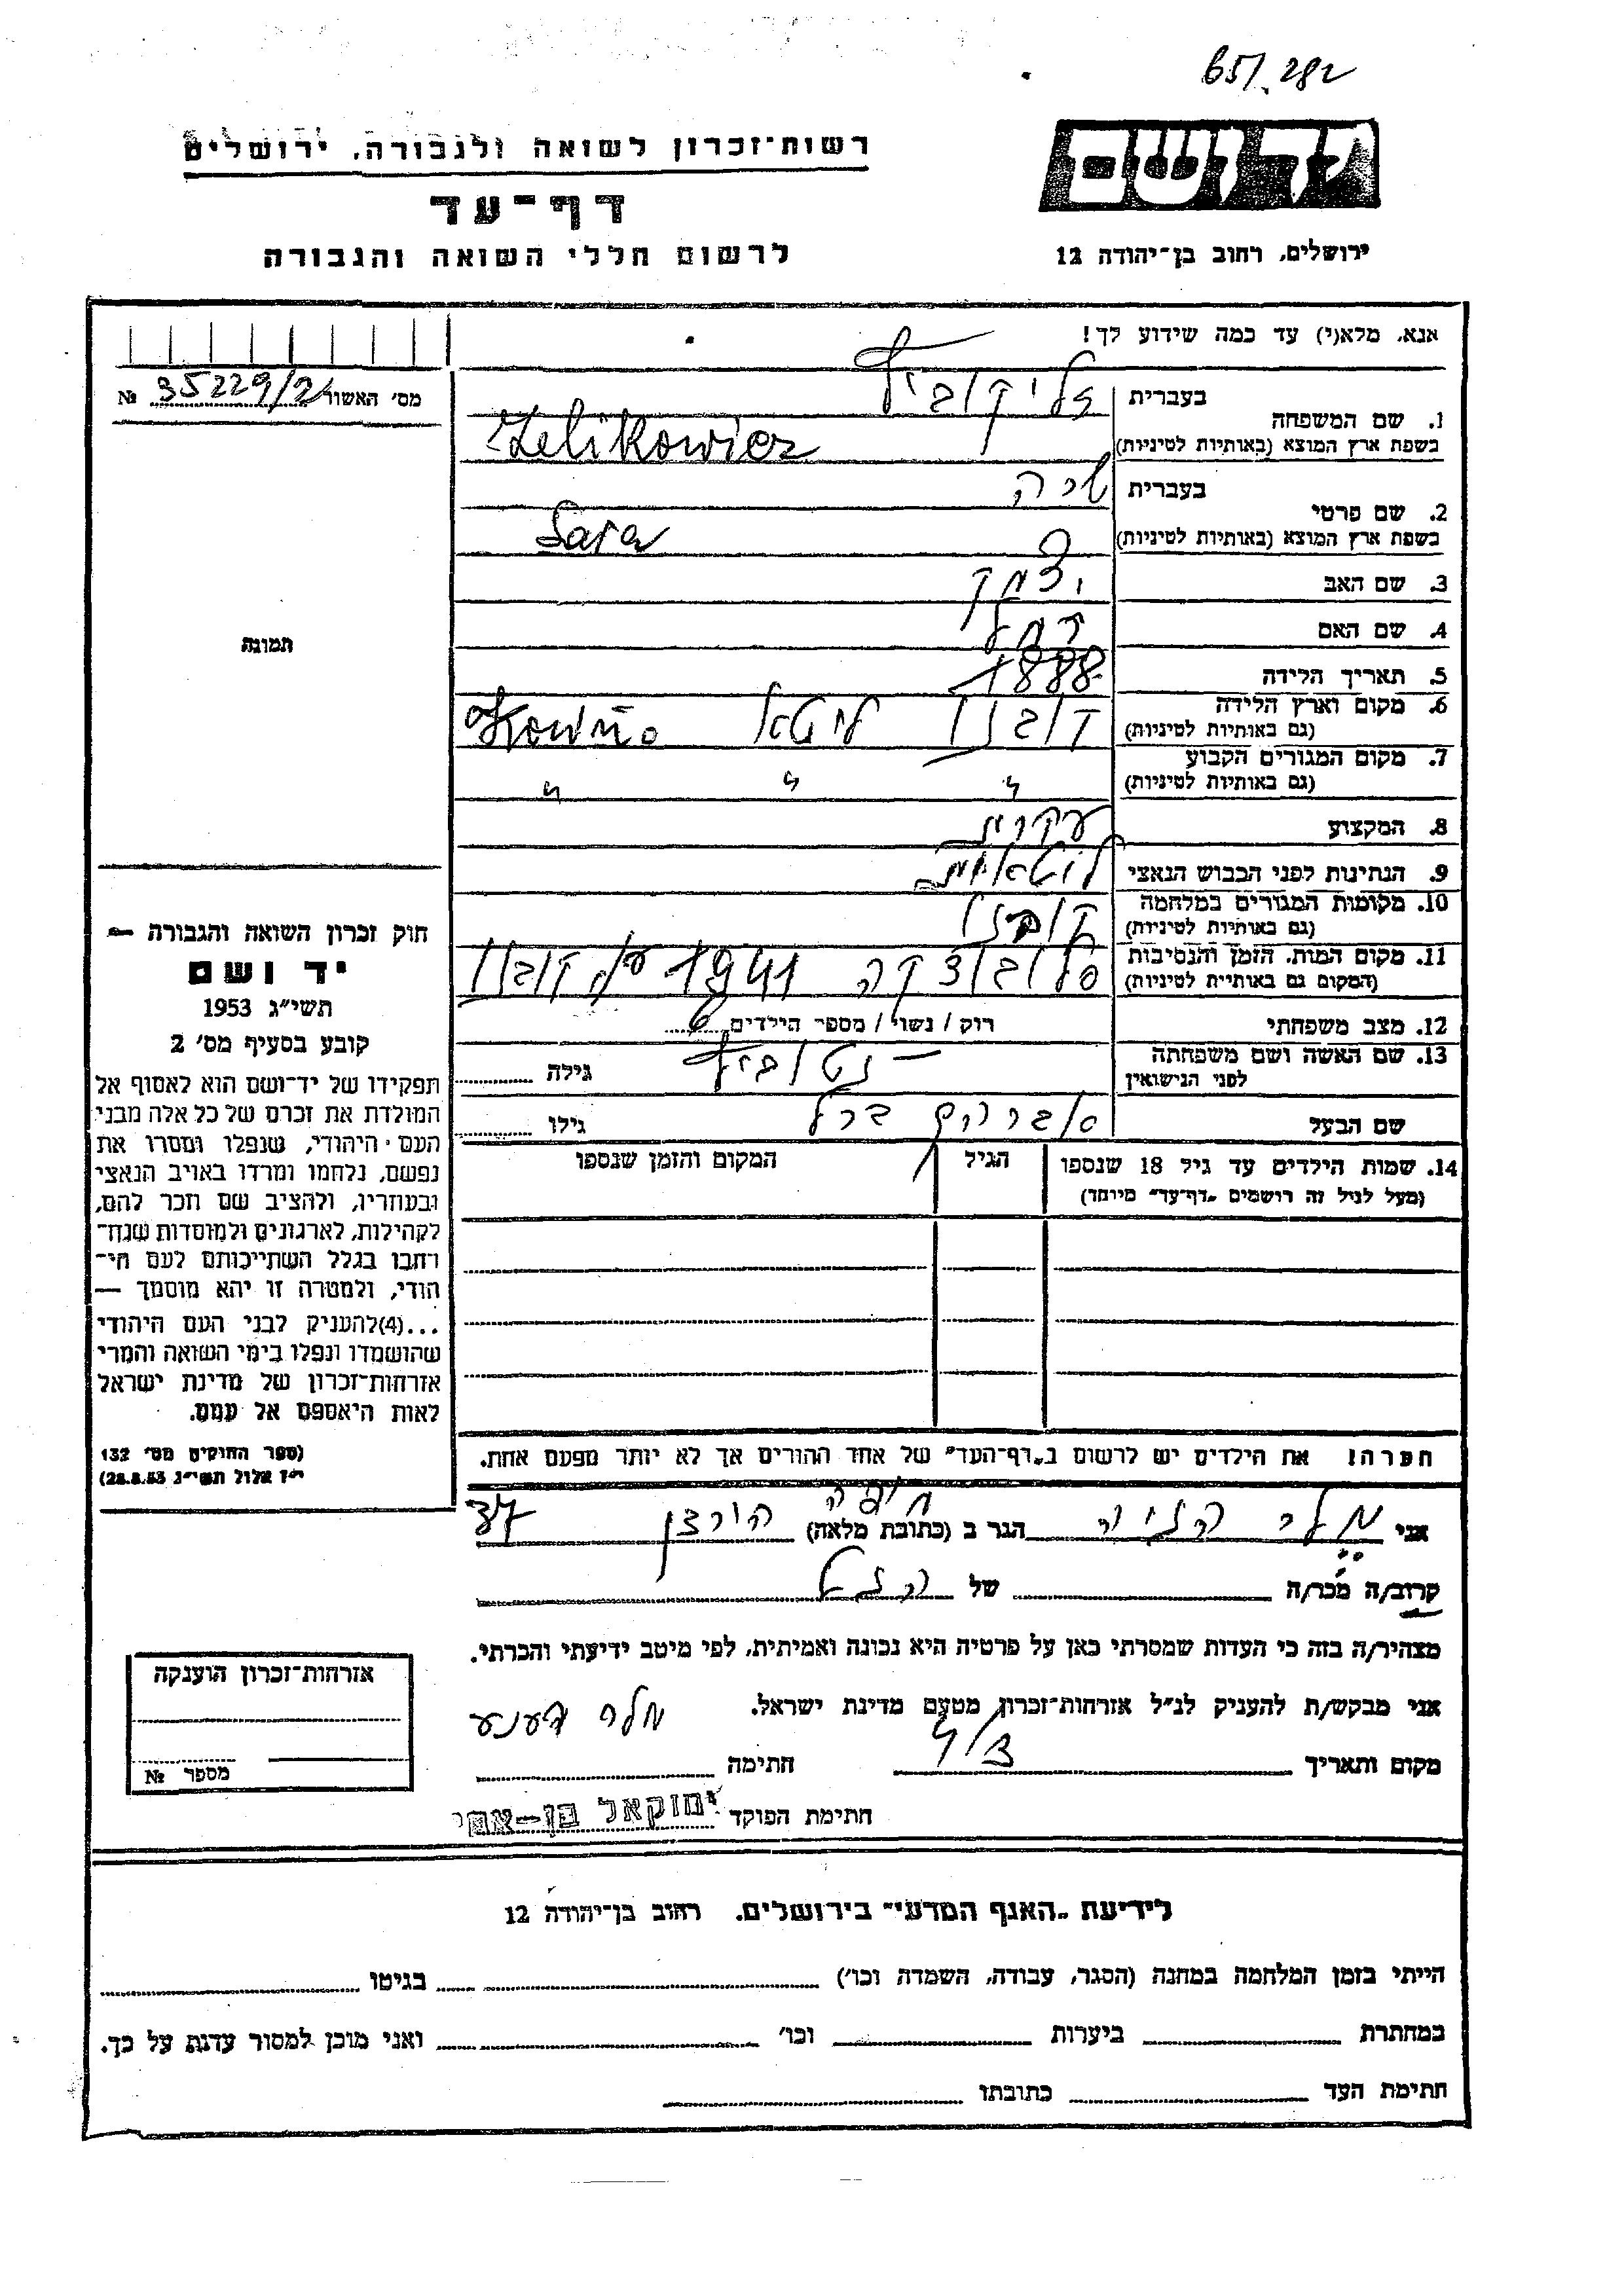 65/282
רשות־זכרון לשואה ולגבורה, ירושלים
יד ושם
דף־עד
לרשום חללי השואה והגבורה
ירושלים, רחוב בן־יהודה 12
אנא, מלא(י) עד כמה שידוע לך!
מס' האשור 35229/2 №
1. שם המשפחה
בעברית זליקוביץ
בשפת ארץ המוצא (באותיות לטיניות) Zelikowicz
2. שם פרטי
בעברית שרה
בשפת ארץ המוצא (באותיות לטיניות) Sara
3. שם האב יצחק
4. שם האם רחל
תמונה
5. תאריך הלידה 1888
6. מקום וארץ הלידה קובנו ליטא Kowno
(גם באותיות לטיניות)
7. מקום המגורים הקבוע " " "
(גם באותיות לטיניות)
8. המקצוע עקרת
9. הנתינות לפני הכבוש הנאצי ליטאית
10. מקומות המגורים במלחמה קובנו
(גם באותיות לטיניות)
11. מקום המות, הזמן והנסיבות סלובודקה 1941 קובנו
(המקום גם באותיות לטיניות)
12. מצב משפחתי רוק / נשוי / מספר הילדים 6
13. שם האשה ושם משפחתה גילה
לפני הנישואין
שם הבעל אברהם ברל גילו
14. שמות הילדים עד גיל 18 שנספו הגיל המקום והזמן שנספו
(מעל לגיל זה רושמים „דף־עד" מיוחד)
חוק זכרון השואה והגבורה —
יד ושם
תשי"ג 1953
קובע בסעיף מס' 2
תפקידו של יד־ושם הוא לאסוף אל
המולדת את זכרם של כל אלה מבני
העם היהודי, שנפלו ומסרו את
נפשם, נלחמו ומרדו באויב הנאצי
ובעוזריו, ולהציב שם וזכר להם,
לקהילות, לארגונים ולמוסדות שנח־
רבו בגלל השתייכותם לעם הי־
הודי, ולמטרה זו יהא מוסמך —
...(4)להעניק לבני העם היהודי
שהושמדו ונפלו בימי השואה והמרי
אזרחות־זכרון של מדינת ישראל
לאות היאספם אל עמם.
(ספר החוקים מס' 132
י"ז אלול תשי"ג 28.8.53)
הערה! את הילדים יש לרשום ב„דף־העד" של אחד ההורים אך לא יותר מפעם אחת.
אני הגר ב (כתובת מלאה) חיפה
קרוב/ה מכר/ה של הנ"ל
מצהיר/ה בזה כי העדות שמסרתי כאן על פרטיה היא נכונה ואמיתית, לפי מיטב ידיעתי והכרתי.
אני מבקש/ת להעניק לנ"ל אזרחות־זכרון מטעם מדינת ישראל.
מקום ותאריך חתימה
חתימת הפוקד יחזקאל בן-אמי
אזרחות־זכרון הוענקה
מספר №
לידיעת „האגף המדעי" בירושלים, רחוב בן־יהודה 12
הייתי בזמן המלחמה במחנה (הסגר, עבודה, השמדה וכו') בגיטו
במחתרת ביערות וכו' ואני מוכן למסור עדות על כך.
חתימת העד כתובתו